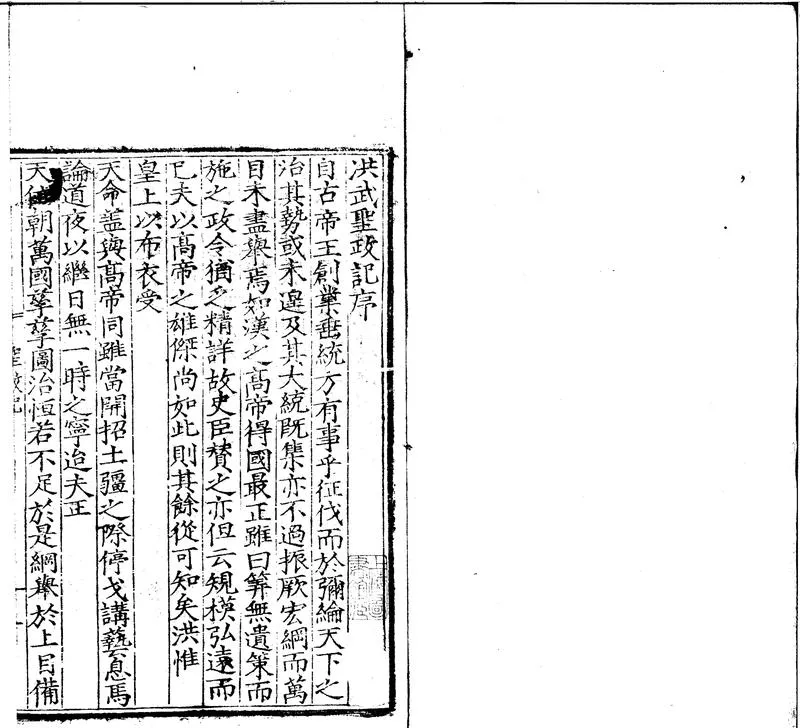 洪武聖政記序
自古帝王創業垂統方有事乎征伐而於彌綸天下之
治其勢或未遑及其大統既集亦不過振厥宏綱而萬
目未盡舉焉如漢之髙帝得國最正雖曰筭無遺策而
施之政令猶乏精詳故史臣賛之亦但云規模弘遠而
已夫以髙帝之雄傑尚如此則其餘從可知矣洪惟
皇上以布衣受
天命盖與髙帝同雖當開招土疆之際停戈講藝息馬
論道夜以繼日無一時之寧迨夫正
天朝萬國孳孳圖治恒若不足於是綱舉於上目備
聖政記